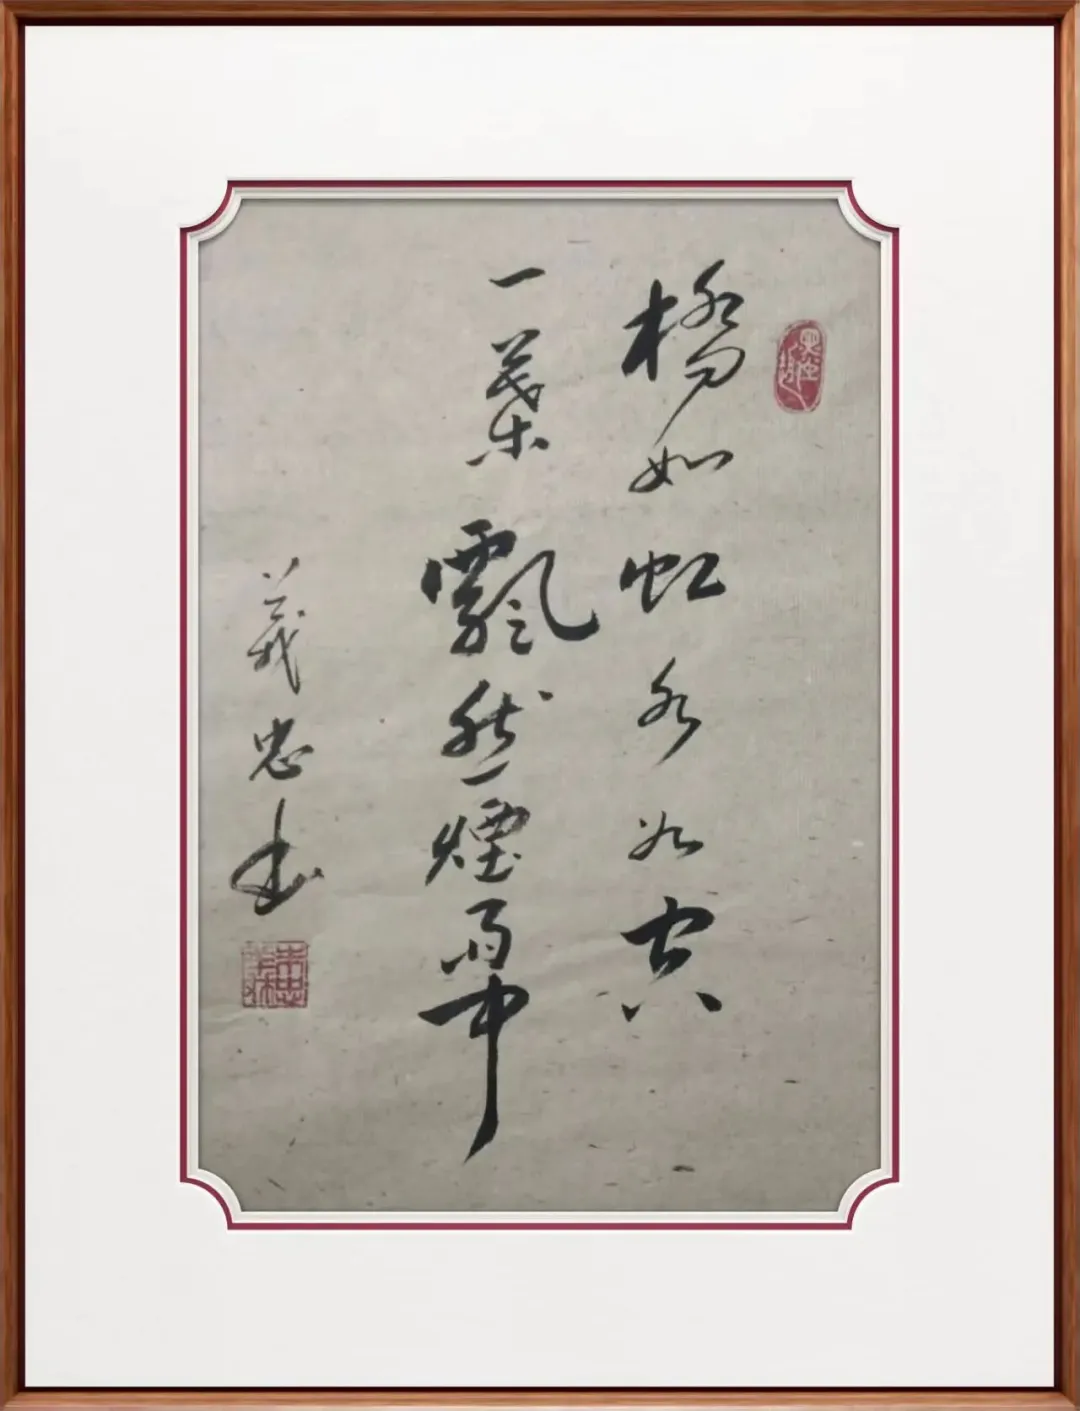 橋如虹水如空
一葉飄然煙雨中
義忠書